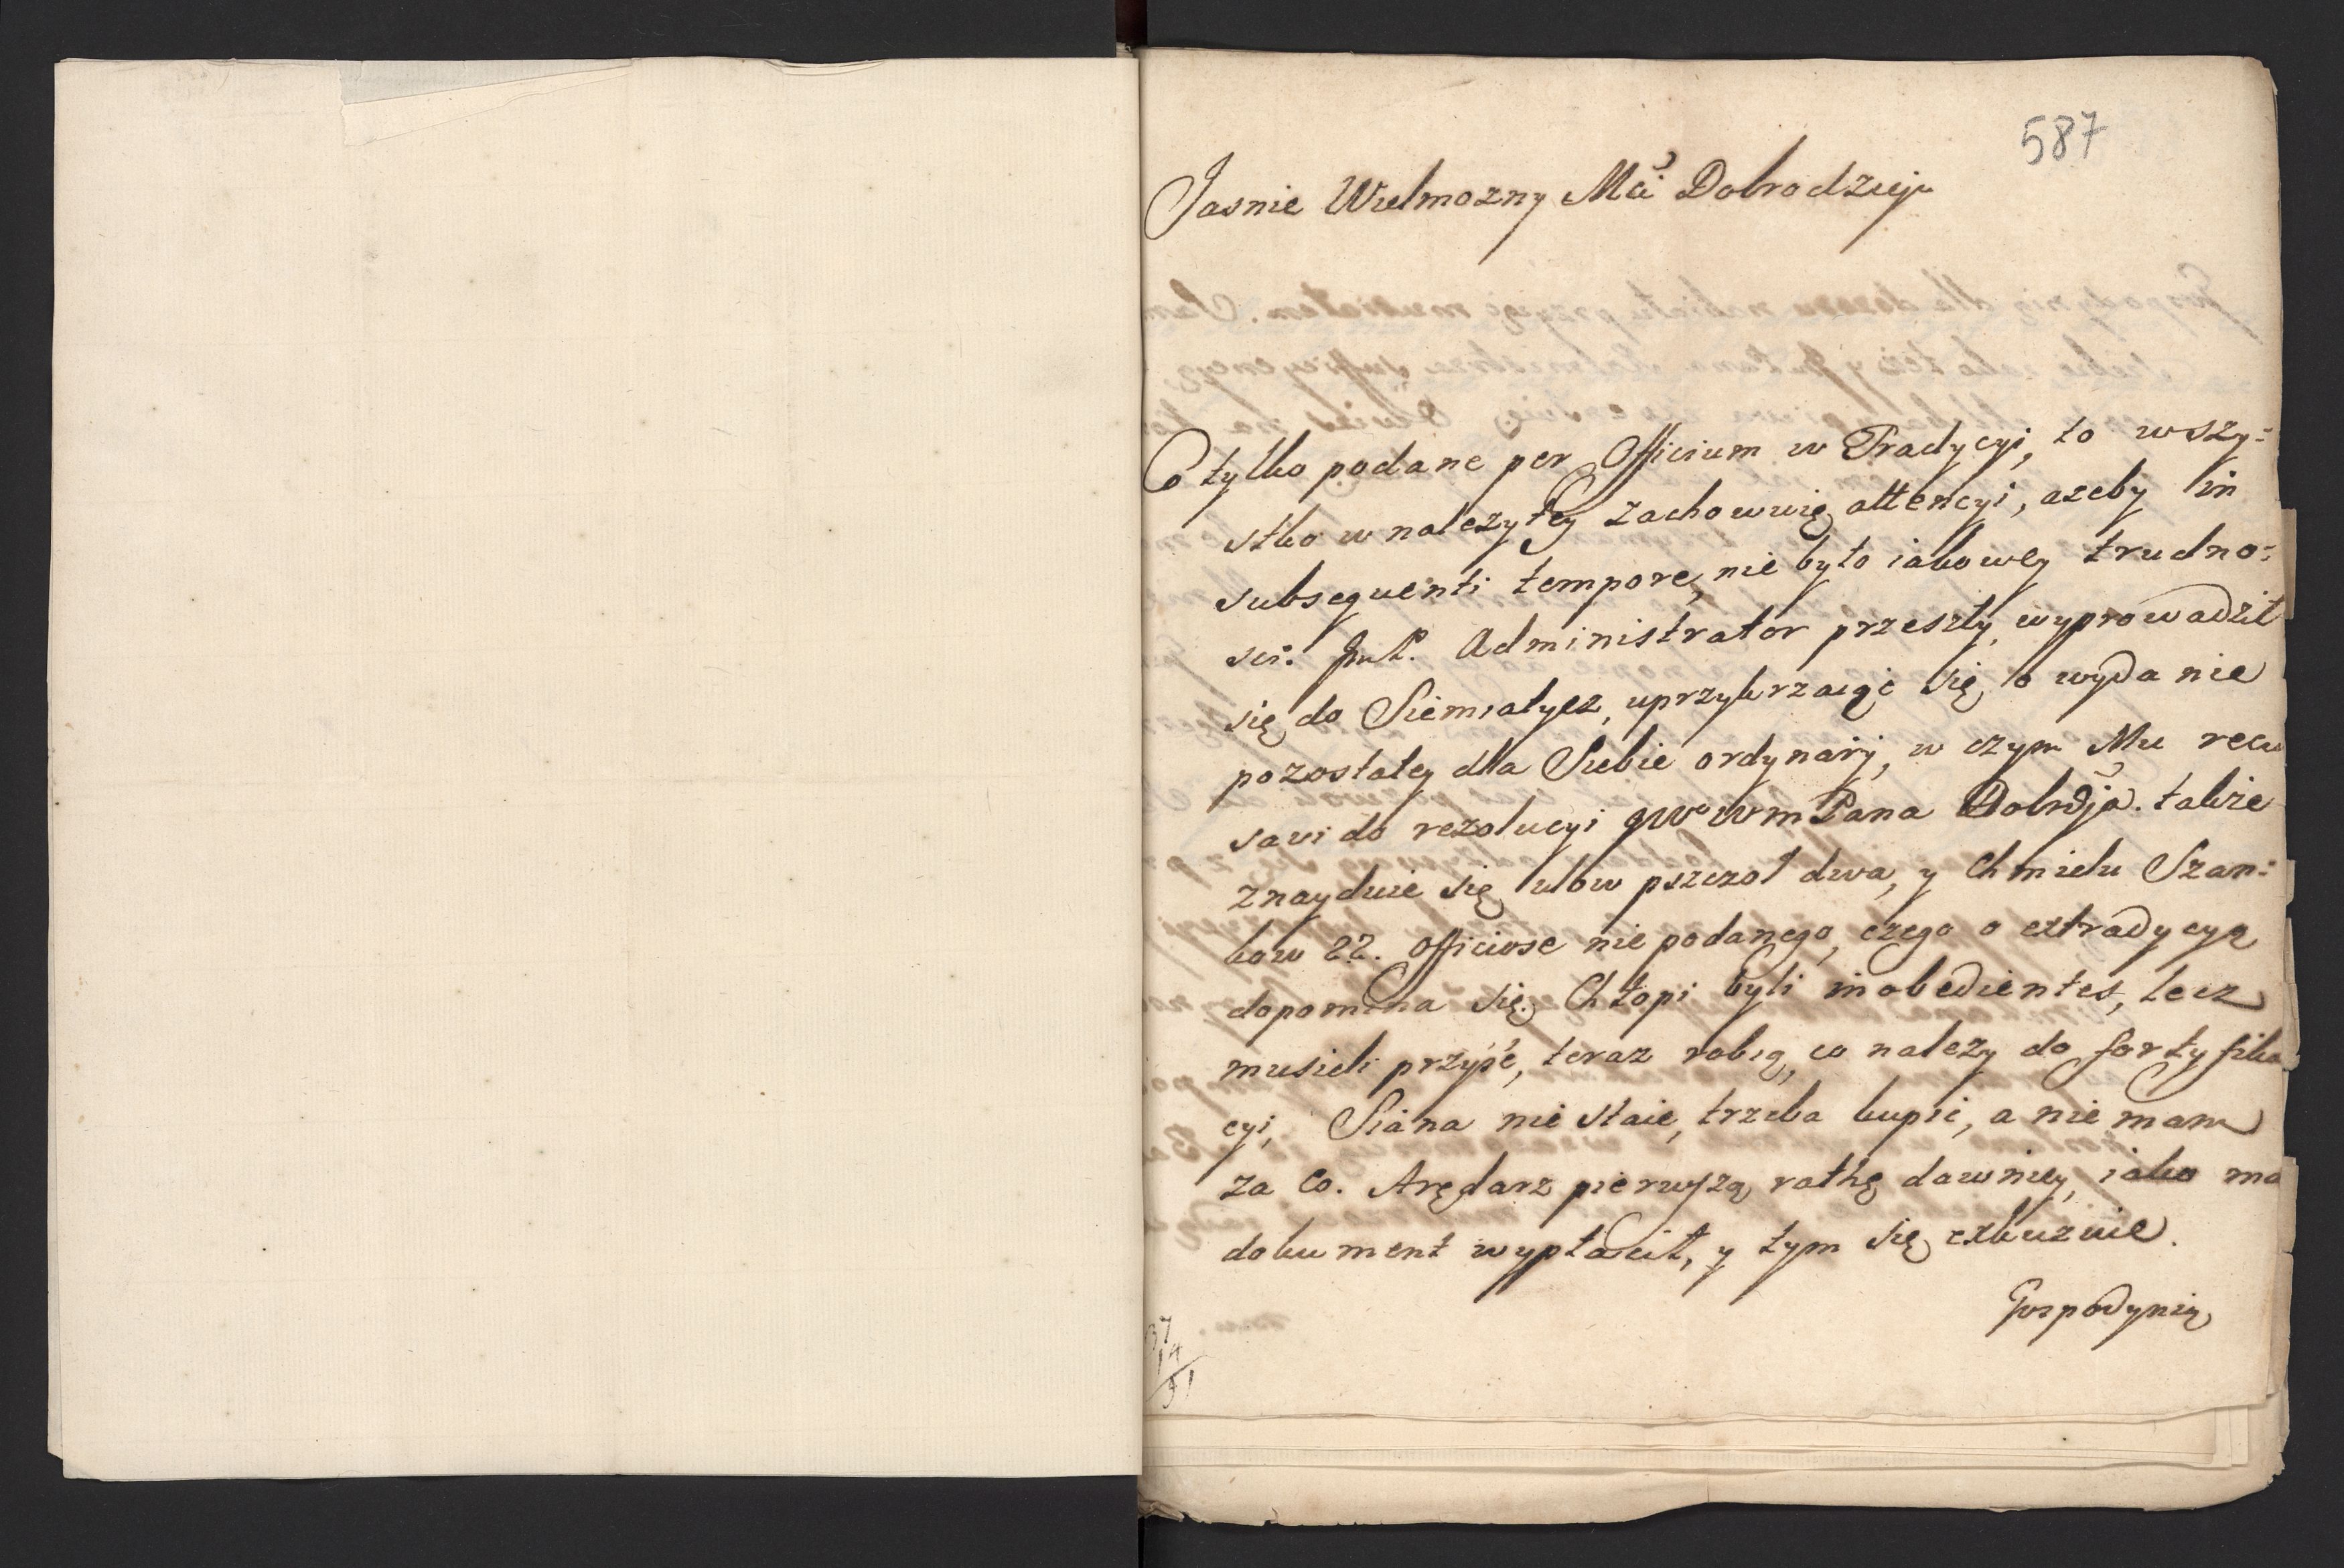 587
Jasnie Wielmozny Mci Dobrodzieju
Co tylko podane per Officium w Tradycyi, to wszy=
stko w nalezytey zachowuię attencyi, azeby in
subsequenti tempore, nie było iakowey trudno=
sci. Administrator przeszły, wyprowadził
się do Siemiatycz, uprzykrzaiąc się o wydanie
pozostałey dla Siebie ordynaryi, w czym Mu recu
savi do rezolucyi JWWm Pana Dobrdja. także
znayduie się ulow pszczoł dwa, y Chmielu Szan=
kow 22. officiose nie podanego, czego o extradycyą
dopomina się. Chłopi byli inobedientes, lecz
musieli przyiść, teraz robią, co nalezy do fortyfika
cyi, Siana nie staie, trzeba kupić, a nie mam
za co. Arędarz pierwszą rathę dawniey, iako ma
dokument wypłacił, y tym się exkuzuie.
Gospodynią
37
14
51